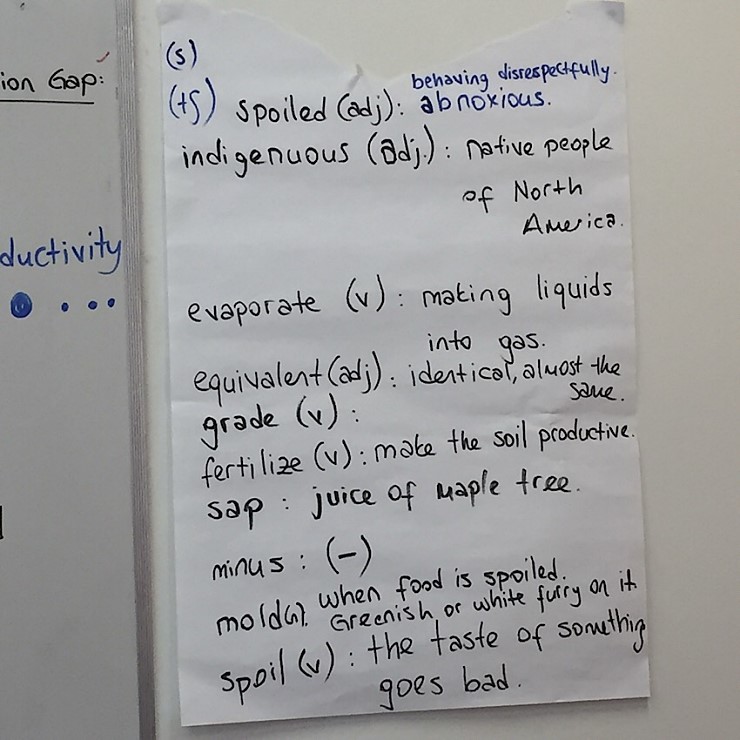 ion Gap:
ductivity
(s)
behaving disrespectfully.
(ts) spoiled (adj): abnoxious.
indigenuous (adj.): native people
of North
America.
evaporate (v): making liquids
into gas.
equivalent (adj): identical, almost the
same.
grade (v):
fertilize (v): make the soil productive.
sap : juice of maple tree.
minus : (-)
mold(n). when food is spoiled.
Greenish or white furry on it
spoil (v): the taste of something
goes bad.